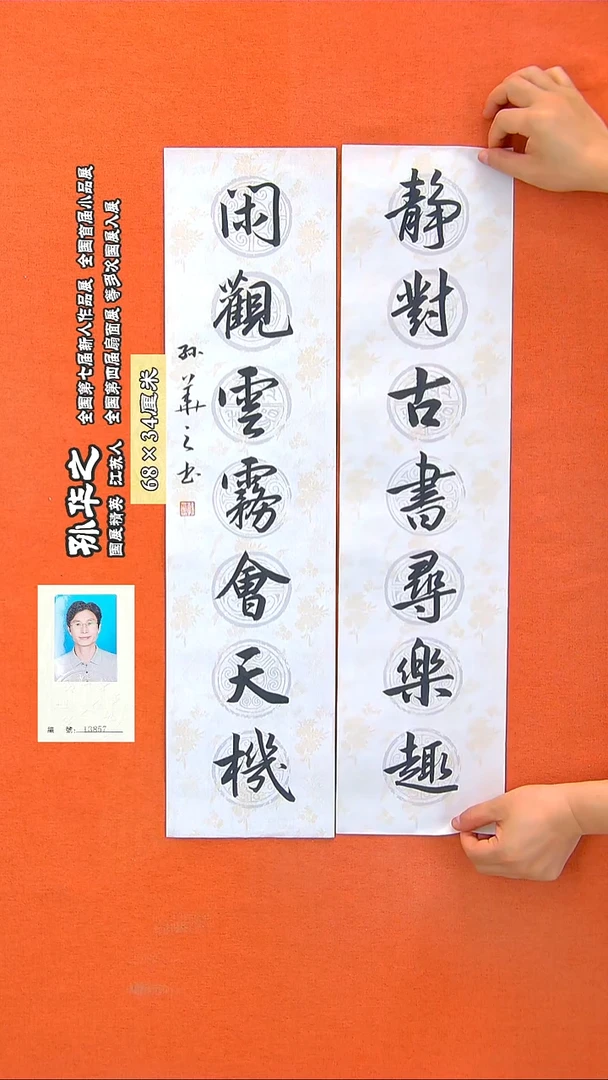 靜對古書尋樂趣
閑觀雲霧會天機
孙華之书
68×34厘米
孙华之
国展精英 江苏人
全国第七届新人作品展 全国首届小品展
全国第四届扇面展 等多次国展入展
編 號: 13857